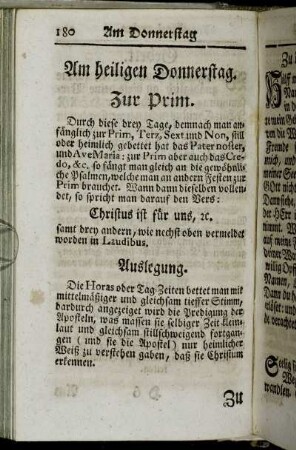 180 Am Donnerstag
Am heiligen Donnerstag.
Zur Prim.
Durch diese drey Tage, demnach man an-
fänglich zur Prim, Terz, Sext und Non, still
oder heimlich gebettet hat das Pater noster,
und Ave Maria: zur Prim aber auch das Cre-
do, &c. so fängt man gleich an die gewöhnli-
che Psalmen, welche man an andern Festen zur
Prim brauchet. Wann dann dieselben vollen-
det, so spricht man darauf den Vers:
Christus ist für uns, ꝛc.
samt drey andern, wie nechst oben vermeldet
worden in Laudibus.
Auslegung.
Die Horas oder Tag-Zeiten bettet man mit
mittelmäßiger und gleichsam tieffer Stimm,
dardurch angezeiget wird die Predigung der
Aposteln, was massen sie selbiger Zeit klein-
laut und gleichsam stillschweigend fortgan-
gen (und sie die Apostel) nur heimlicher
Weiß zu verstehen gaben, daß sie Christum
erkennen.
Zu